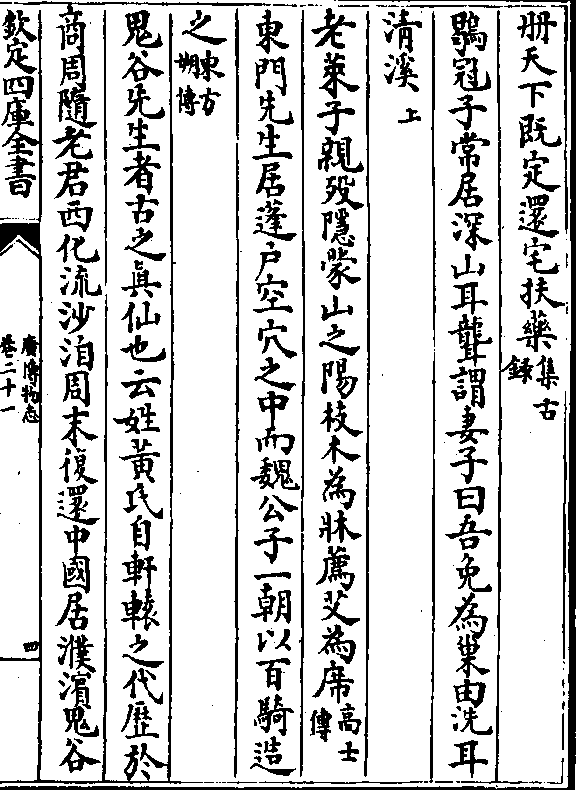 册天下既定還宅扶藥集古錄
鶡冠子常居深山耳聾謂妻子曰吾免為巢由洗耳
清溪上
老萊子親歿隱蒙山之陽枝木為牀薦艾為席高士傳
東門先生居蓬户空穴之中而魏公子一朝以百騎造
之東方朔傳
鬼谷先生者古之真仙也云姓黄氏自軒轅之代歴於
商周隨老君西化流沙洎周末復還中國居濮濵鬼谷
欽定四庫全書
廣博物志
卷二十一
四